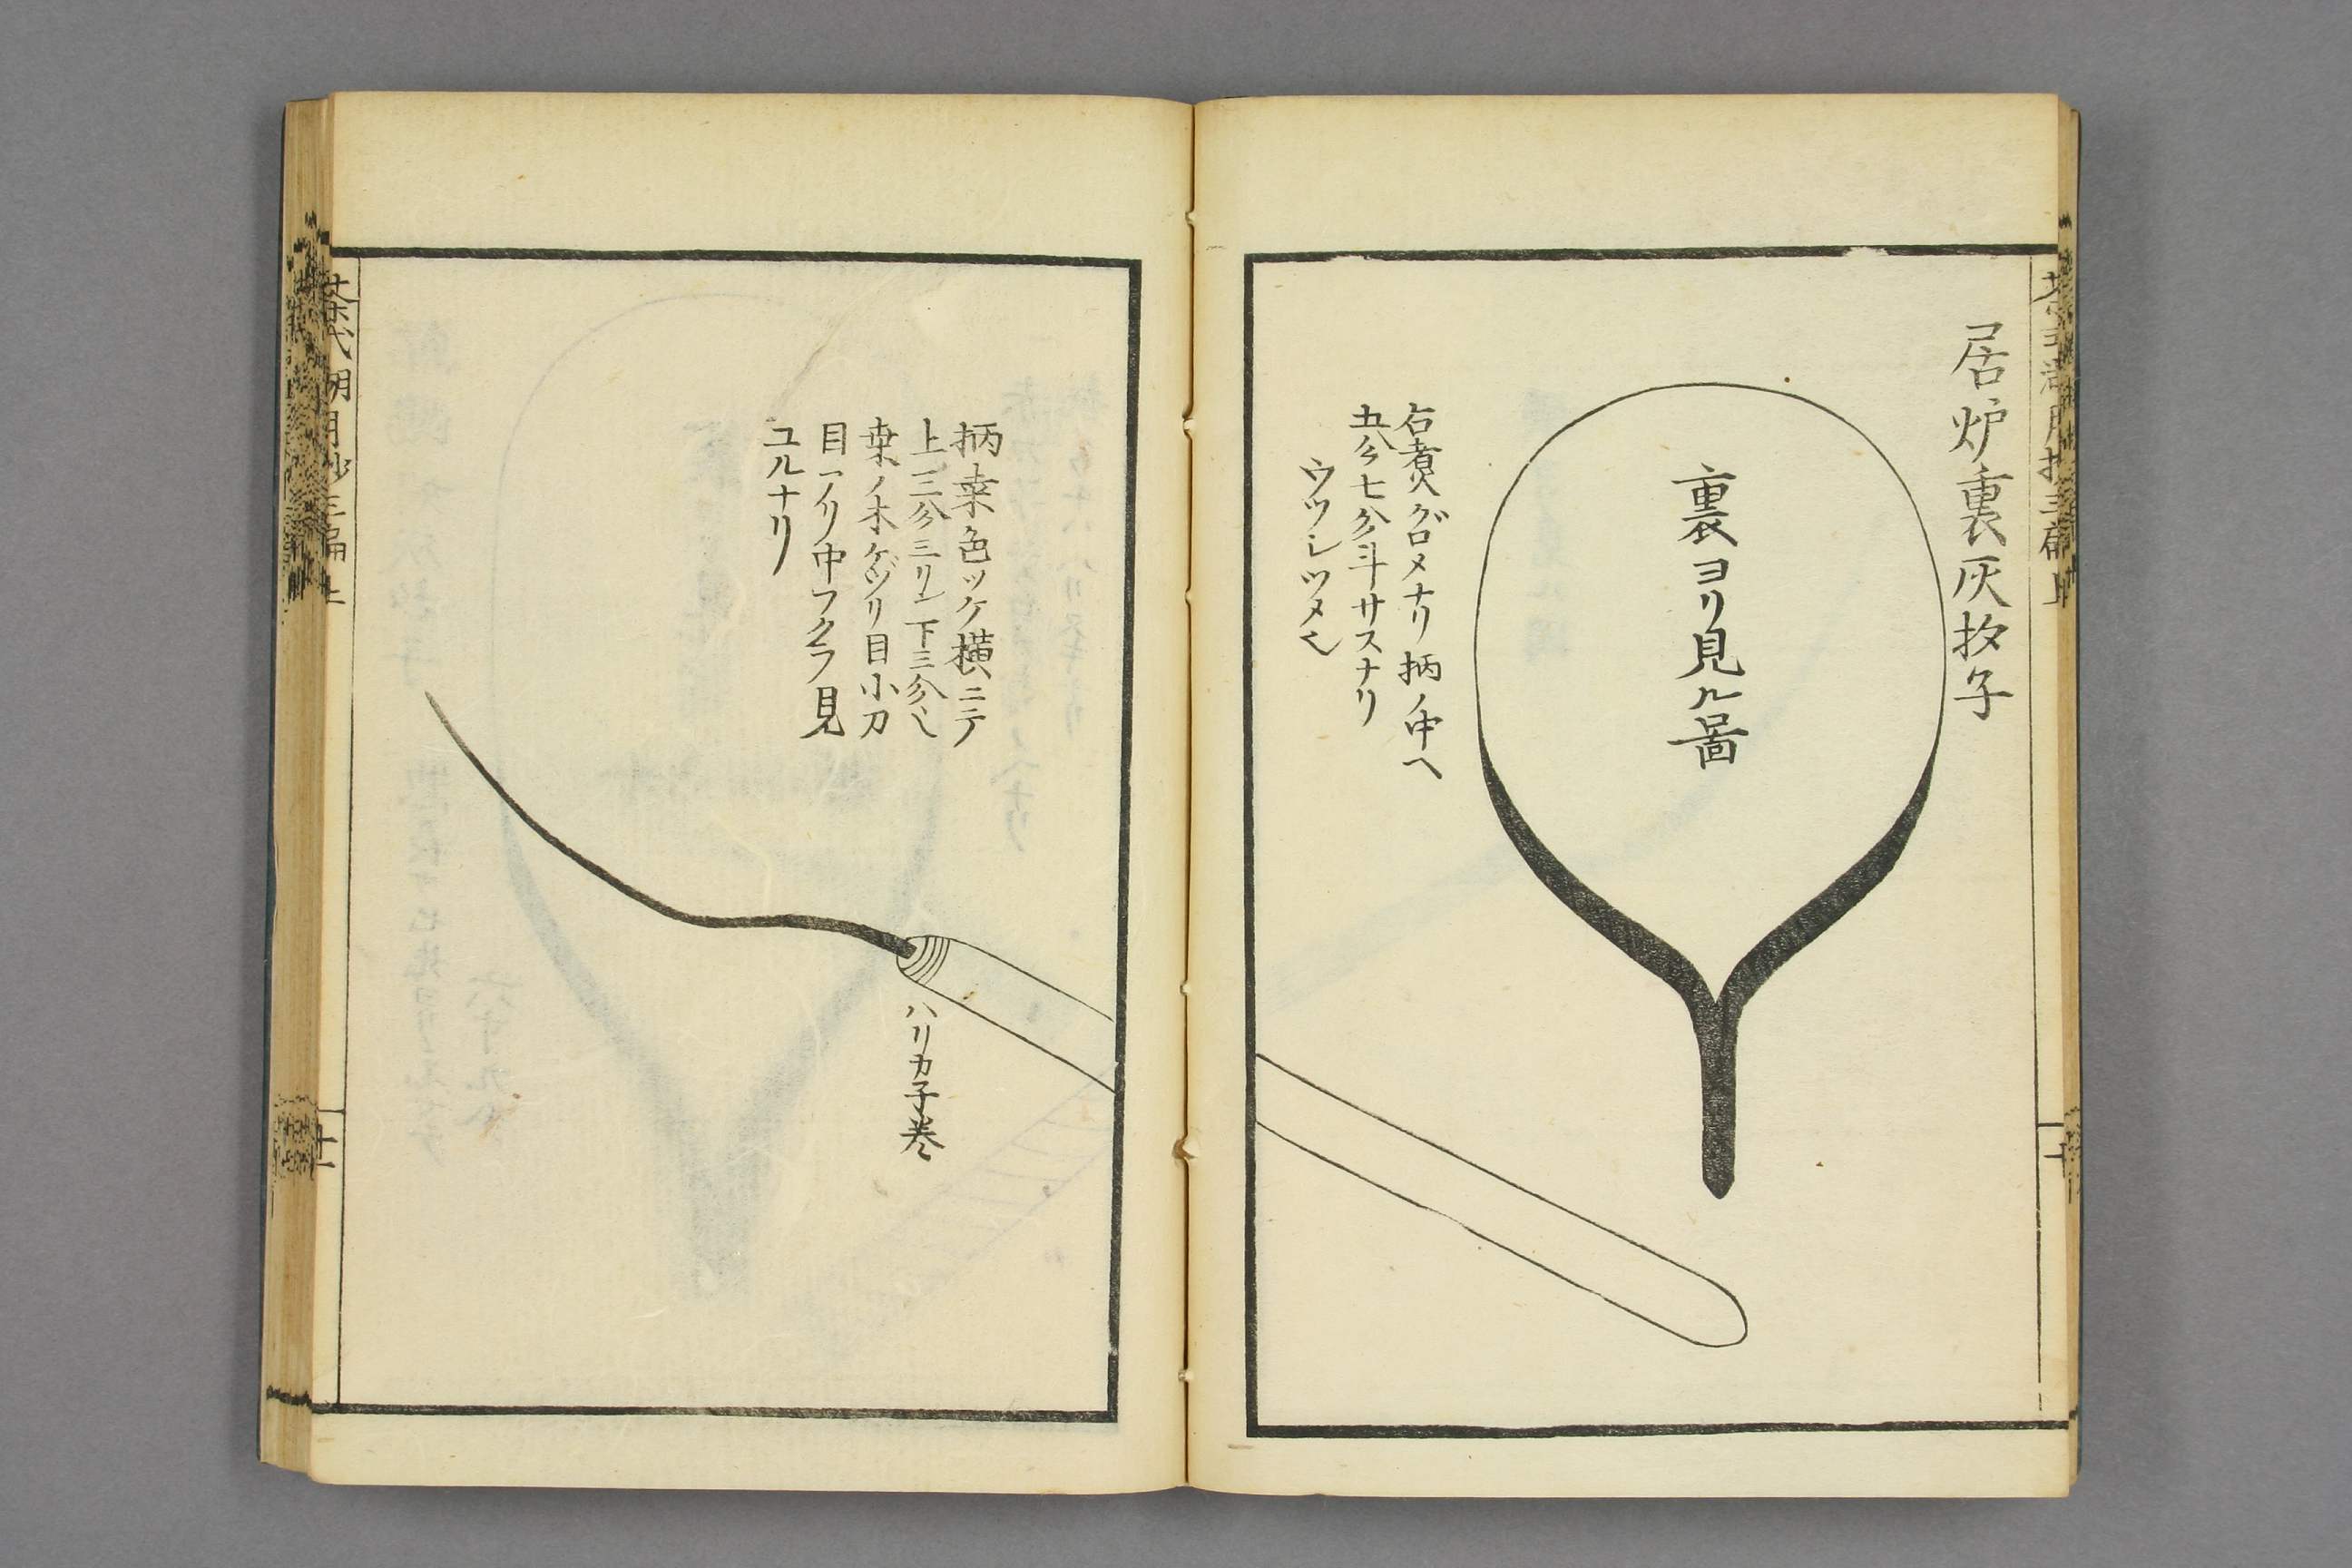 居炉裏灰抄子
裏ヨリ見ル啚
右煮グロメナリ柄ノ中ヘ
五分七分斗サスナリ
ウツシツメ也
柄桑色ツケ横ニテ
上ニ三分三リン下三分ニ
桑ノ木ケヅリ目小刀
目アリ中フクラフ見
ユルナリ
ハリカ子巻
茶式湖月抄三編上